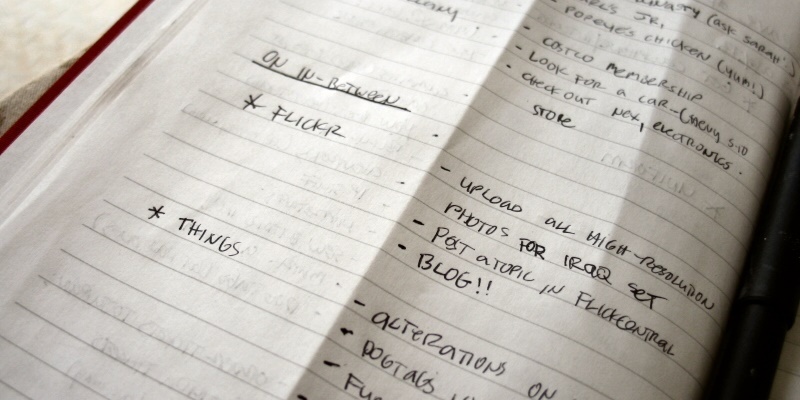 (ask Sarah!)
JR,
- POPEYES CHICKEN (YUM!)
- COSTCO MEMBERSHIP
- LOOK FOR A CAR - CHEVY S-10
- CHECK OUT NEX, ELECTRONICS
STORE
ON IN-BETWEEN
* FLICKR
- UPLOAD ALL HIGH-RESOLUTION
PHOTOS FOR IRAQ SET
- POST A TOPIC IN FLICKCENTRAL
- BLOG!!
* THINGS
- ALTERATIONS ON
- DOGTAGS